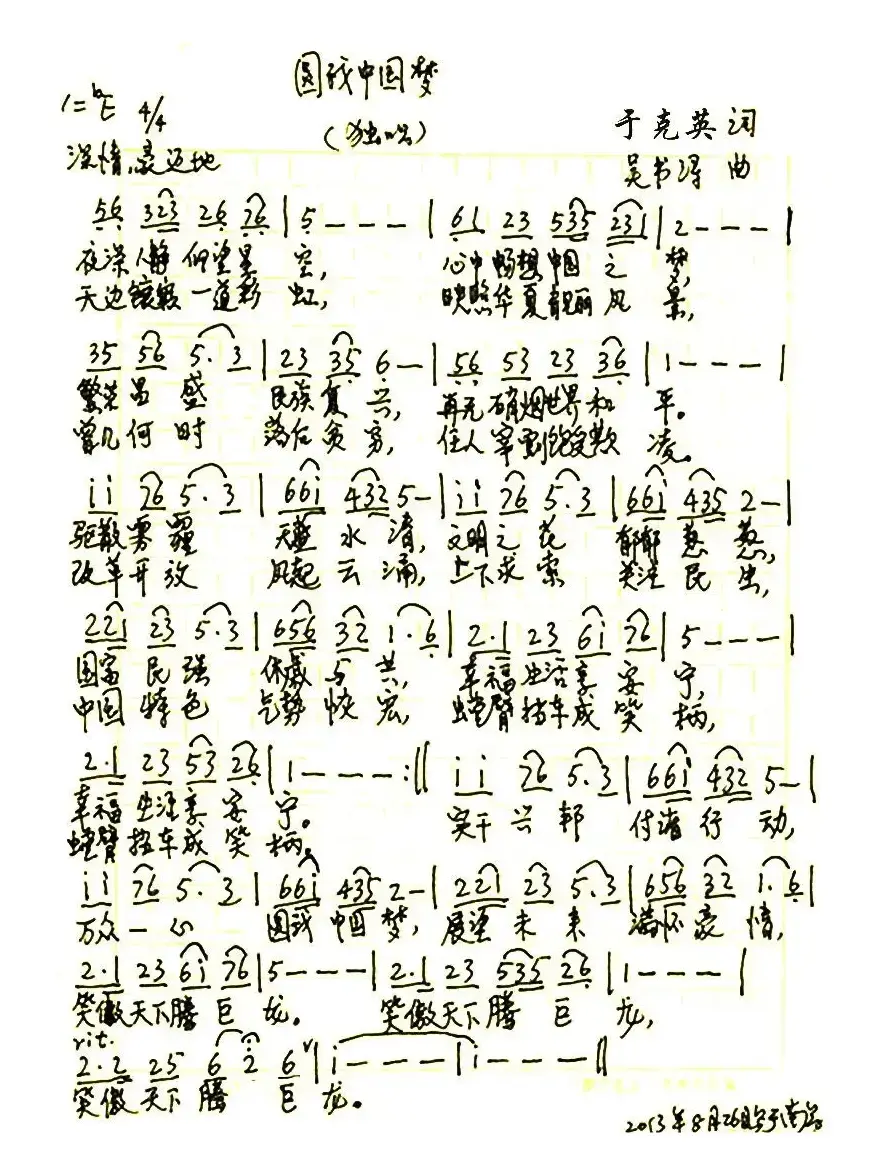 圆我中国梦
1=♭E 4/4
(独唱)
于克英 词
深情、豪迈地
吴书得 曲
56 323 26 76 | 5 - - - | 61 23 535 231 | 2 - - - |
夜深人静 仰望星 空, 心中畅想中国 之 梦,
天边镶嵌 一道彩 虹, 映照华夏靓丽 风 景,
35 56 5.3 | 23 35 6 - | 56 53 23 36 | 1 - - - |
繁荣昌 盛 民族复 兴, 再无硝烟世界和 平。
曾几何 时 落后贫 穷, 任人宰割饱受欺 凌。
ii 76 5.3 | 66i 432 5 - | ii 76 5.3 | 66i 435 2 - |
驱散雾 霾 天蓝 水 清, 文明之 花 郁郁 葱 葱,
改革开 放 风起 云 涌, 上下求 索 关注 民 生,
221 23 5.3 | 656 32 1.6 | 2.1 23 6i 76 | 5 - - - |
国富 民 强 休戚 与 共, 幸福 生活享 安 宁,
中国 特 色 气势 恢 宏, 螳臂 挡车成 笑 柄,
2.1 23 53 26 | 1 - - - :|| ii 76 5.3 | 66i 432 5 - |
幸福 生活享 安 宁。 实干 兴 邦 付诸 行 动,
螳臂 挡车成 笑 柄。
ii 76 5.3 | 66i 435 2 - | 221 23 5.3 | 656 32 1.6 |
万众 一 心 圆我 中国 梦, 展望 未 来 满怀 豪 情,
2.1 23 6i 76 | 5 - - - | 2.1 23 535 26 | 1 - - - |
笑傲天下腾 巨 龙。 笑傲天下腾 巨 龙,
rit.
2.2 25 6 2 6 | i - - - | i - - - ||
笑傲 天下 腾 巨 龙。
2013年8月26日